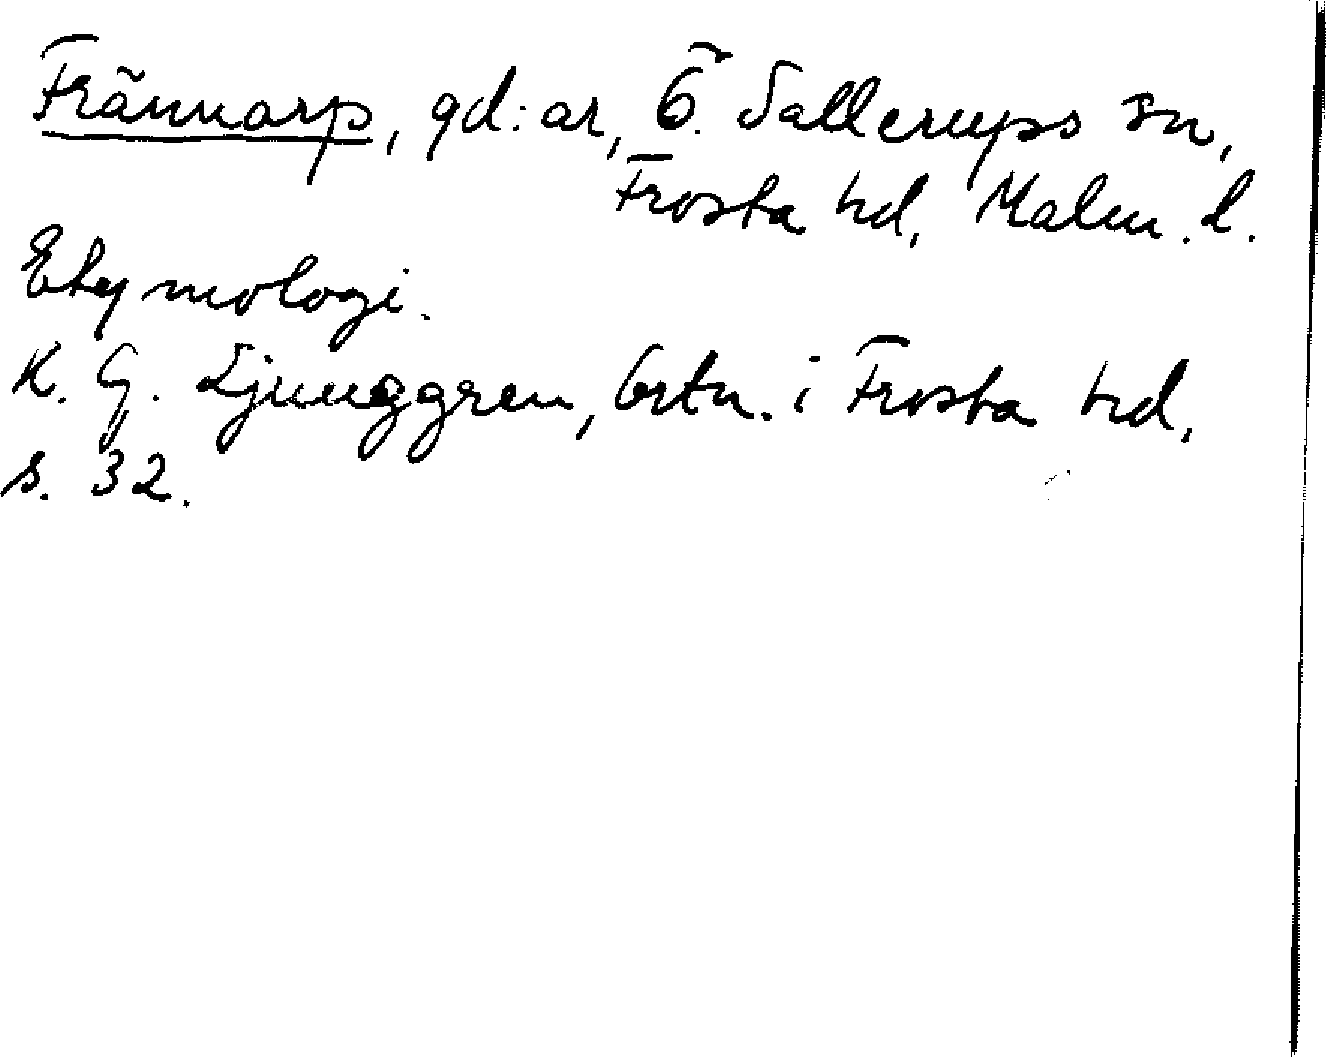 Frännarp, gd:ar, Ö. Sallerups sn,
Frosta hd, Malm. l.
Etymologi.
K. G. Ljunggren, Ortn. i Frosta hd,
s. 32.